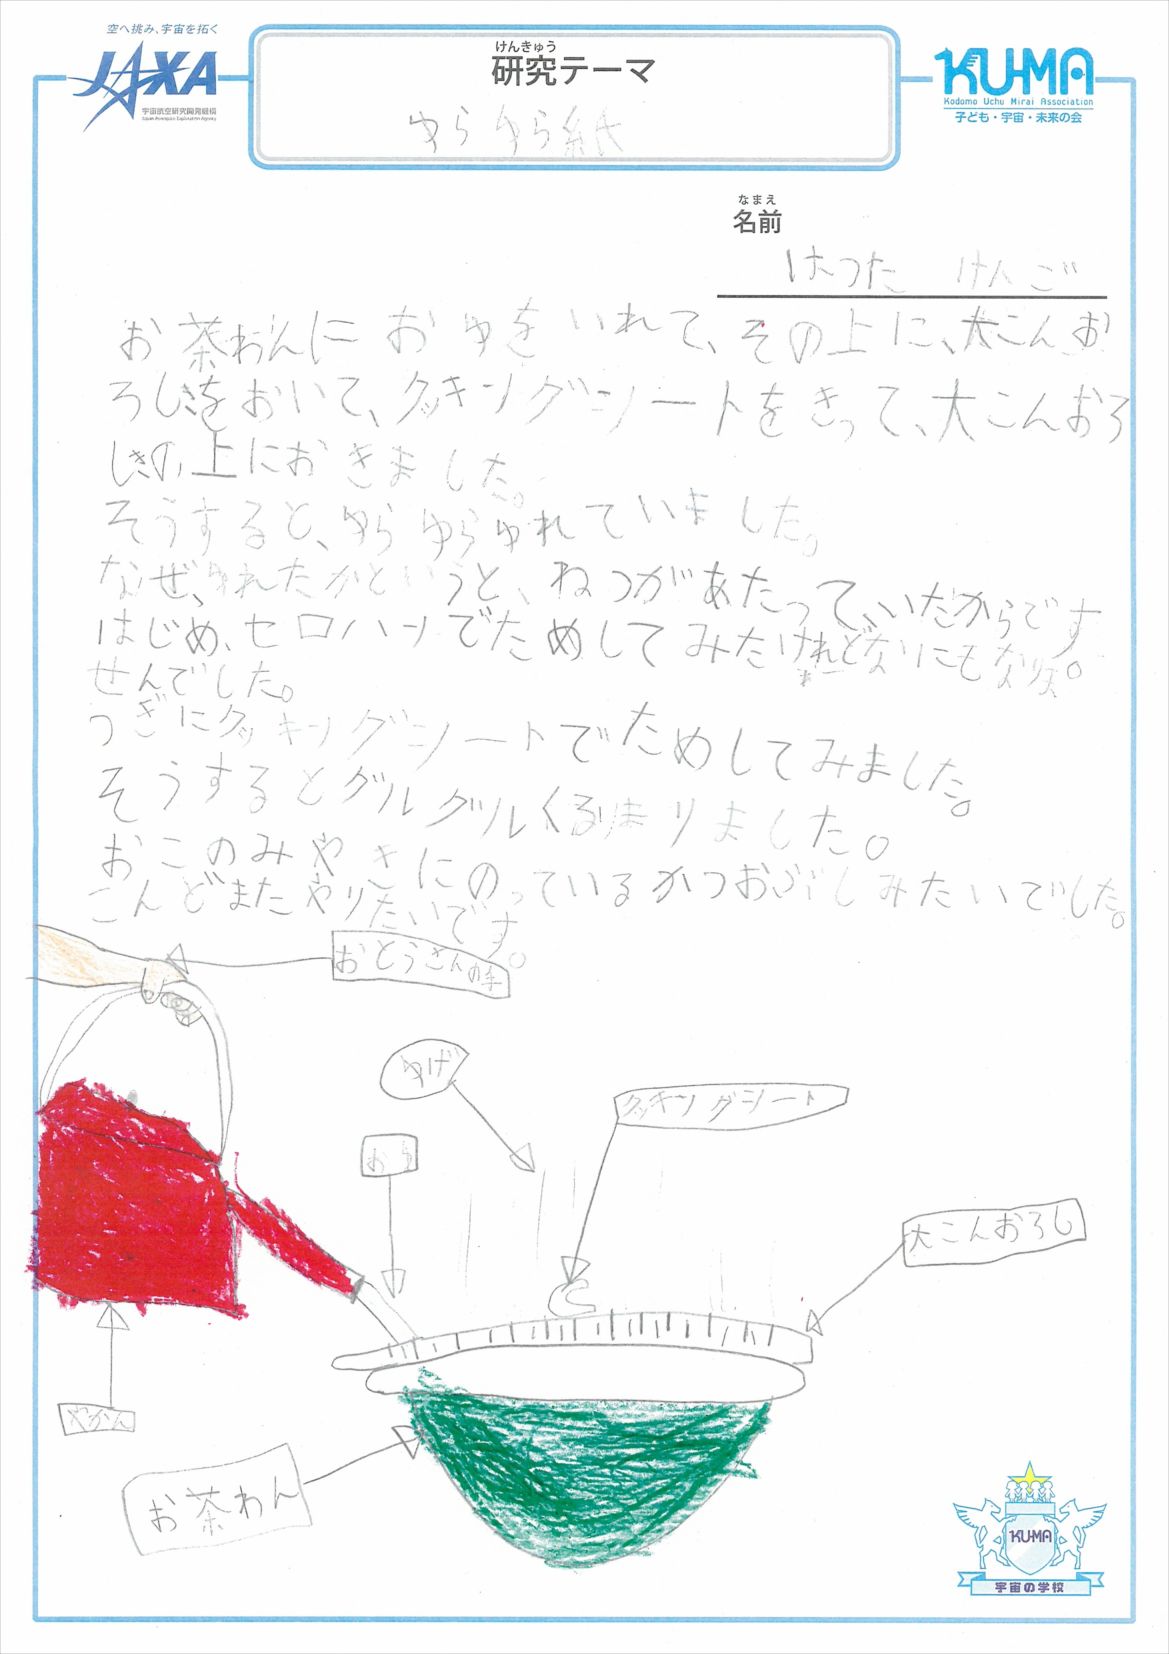 空へ挑み、宇宙を拓く
JAXA
宇宙航空研究開発機構
Japan Aerospace Exploration Agency
けんきゅう
研究テーマ
KU-MA
Kodomo Uchu Mirai Association
子ども・宇宙・未来の会
ゆらゆら紙
なまえ
名前
はつた けんご
お茶わんにおゆをいれて、その上に、大こんお
ろしきをおいて、クッキングシートをきって、大こんおろ
しきの上におきました。
そうすると、ゆらゆらゆれていました。
なぜ、ゆれたかというと、ねつがあたって、いたからです
はじめ、セロハンでためしてみたけれどなにもなりま。
せんでした。
つぎにクッキングシートでためしてみました。
そうするとグルグルくるりまりました。
おこのみやきにのっているかつおぶしみたいでした。
こんどまたやりたいです。
おとうさんの手
ゆげ
クッキングシート
おゆ
大こんおろし
やかん
お茶わん
KU-MA
宇宙の学校